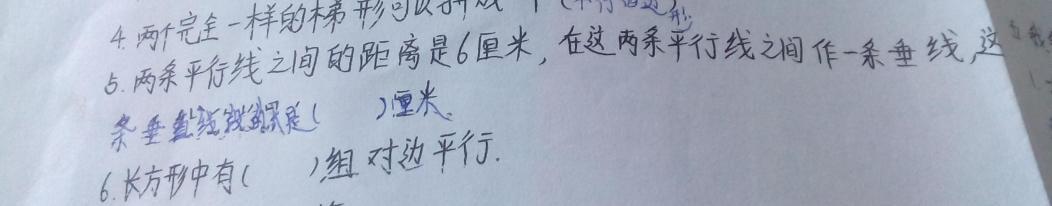 4. 两个完全一样的梯形可以拼成一个(平行四边形
5. 两条平行线之间的距离是6厘米,在这两条平行线之间作一条垂线,这
条垂直线段的长是( )厘米.
6. 长方形中有( )组对边平行.